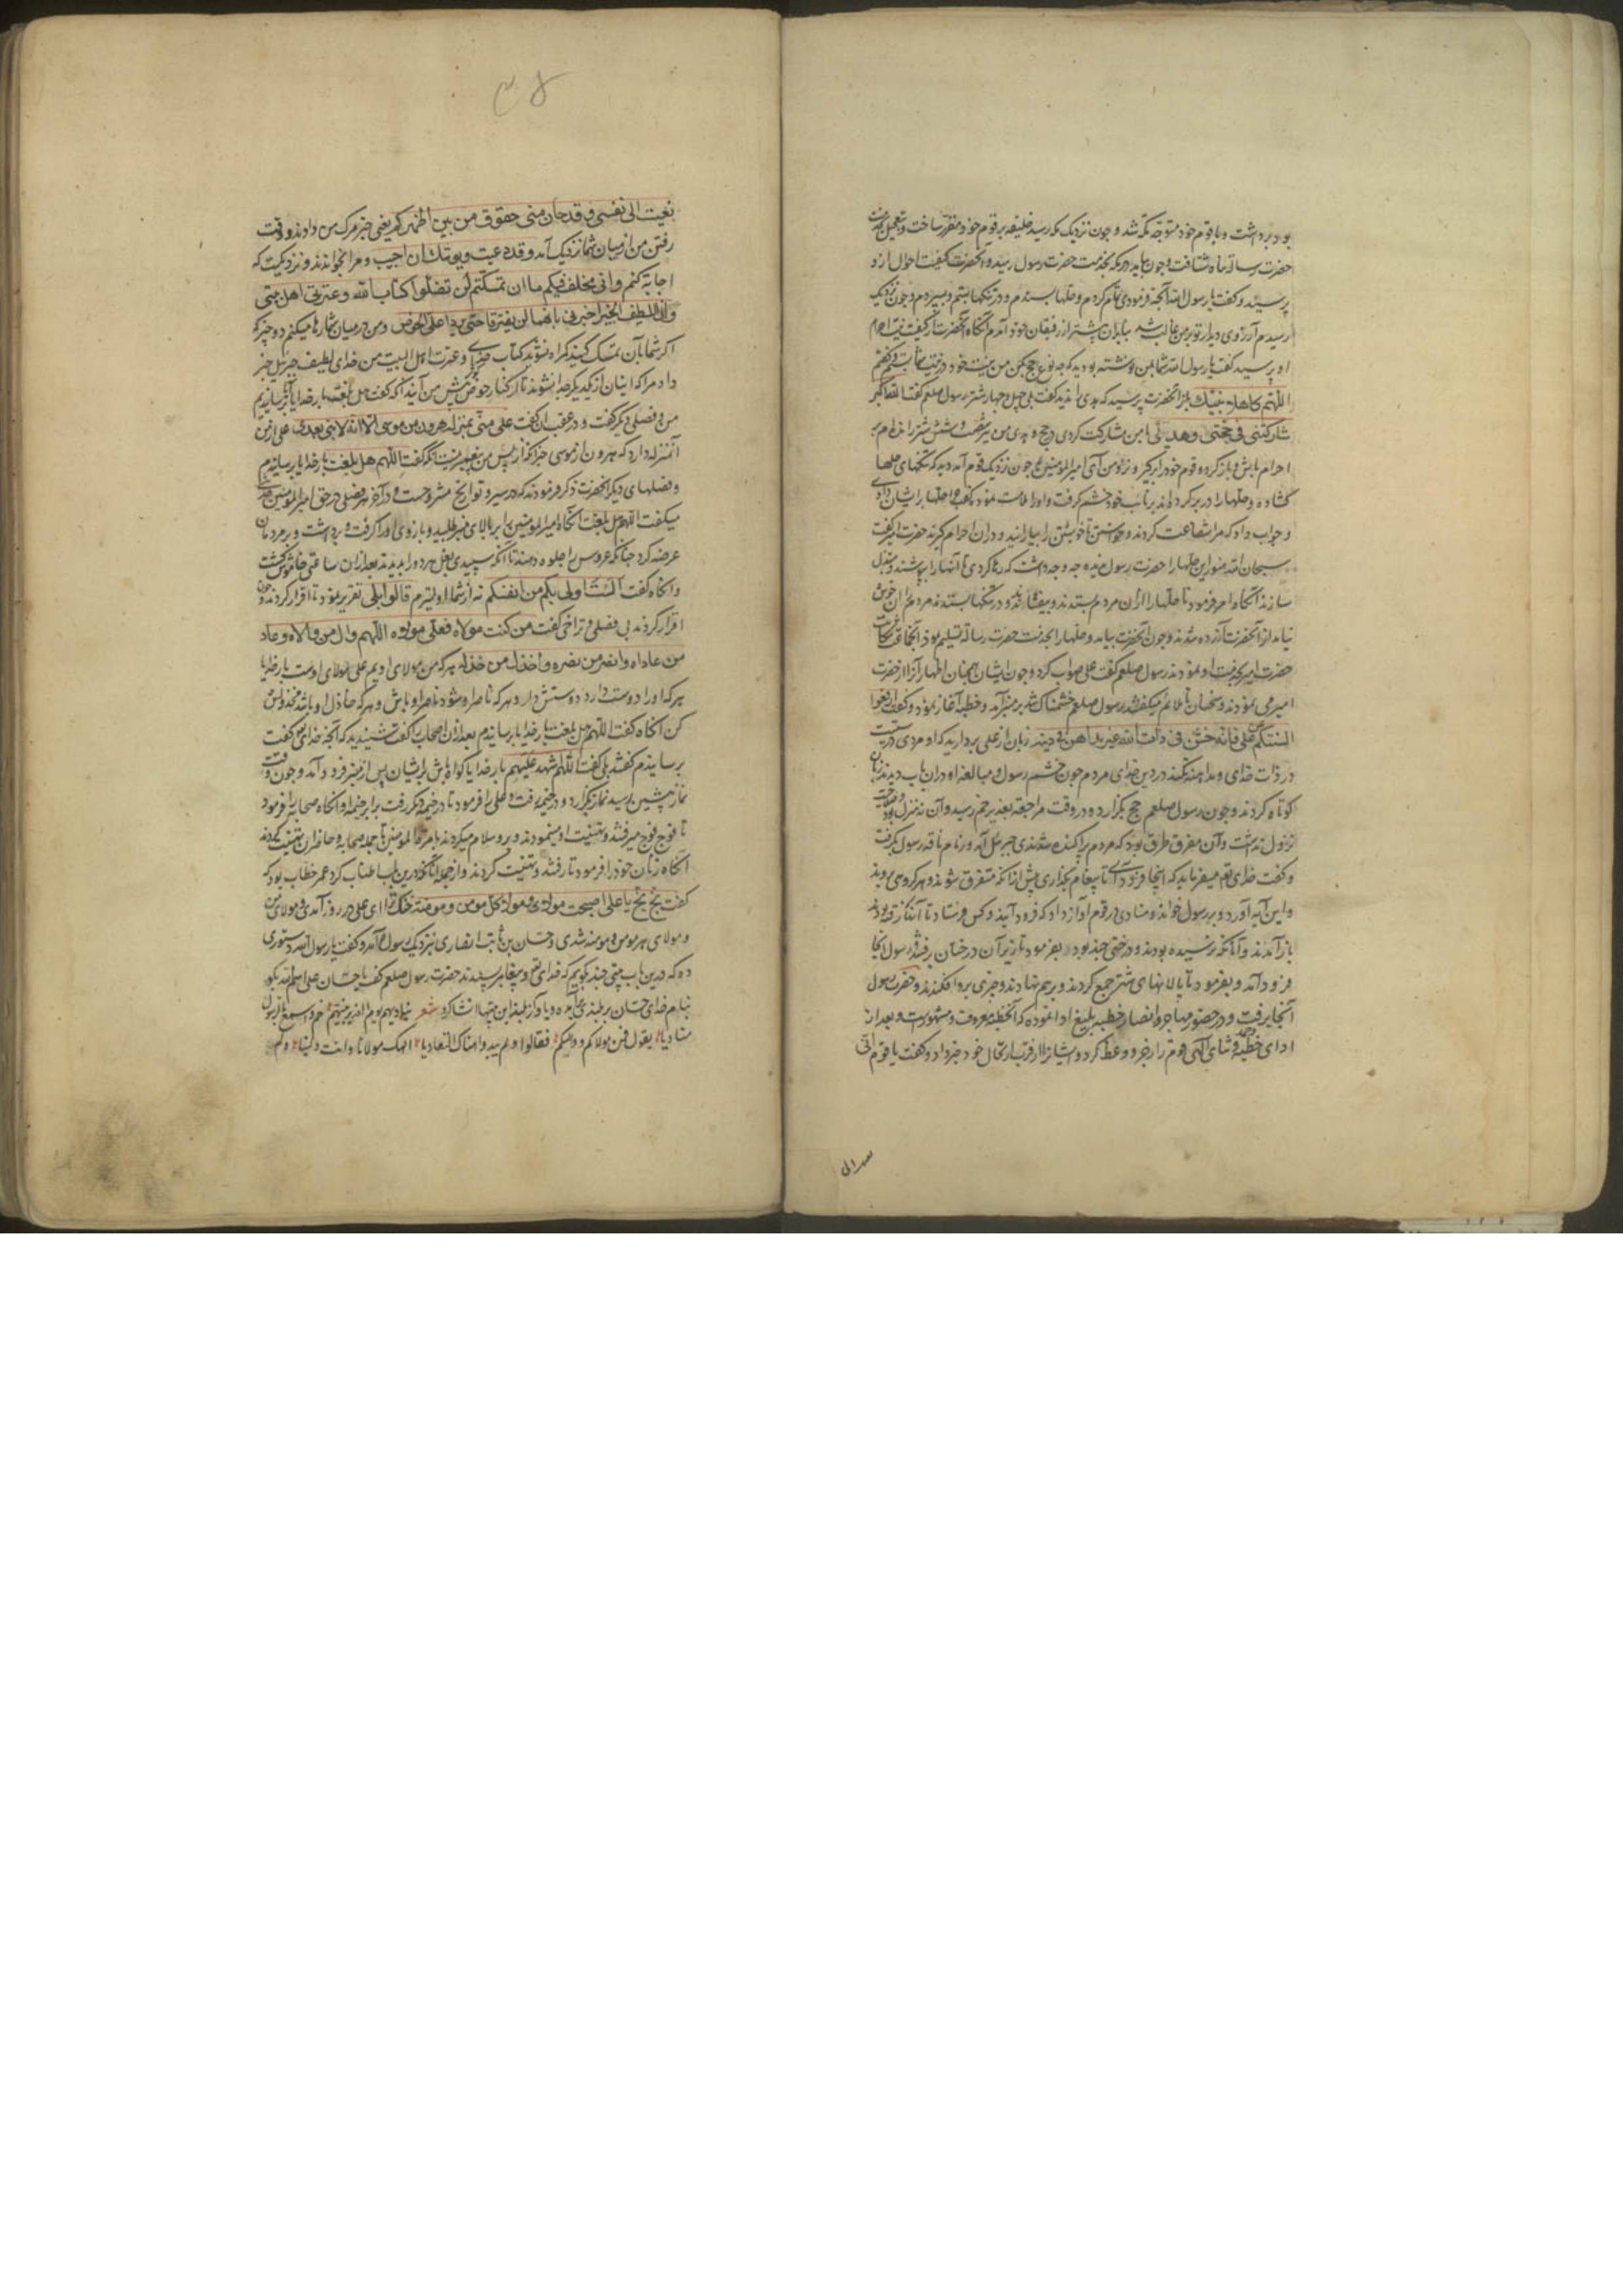 بود برداشت و با قوم خود متوجه مکه شد و چون نزدیک مکه رسید خلیفه بر قوم خود مقرر ساخت و تعجیل بخدمت
حضرت رسالة پناه شتافت و چون بیامد در مکه بخدمت حضرت رسول رسید و آنحضرت کیفیت احوال از و
پرسید و گفت یا رسول الله آنچه فرمودی تمام کردم و حلها بستدم و در تنگها بستم و سپردم و چون نزدیک
رسیدم آرزوی دیدار تو بر من غالب شد بنابران پیشتر از رفیقان خود آمدم آنگاه آنحضرت از کیفیت نیت احرام
او پرسید گفت یا رسول الله شما بمن ننوشته بودید که چه نوع حج کن من نیت خود در نیت شما بستم و گفتم
اللهم کاهلال نبیک بعد از آنحضرت پرسید که هدی رانده‌اید گفت بلی چهل و چهار شتر رسول صلعم گفت الله اکبر
شارکتنی فی حجتی وهدیی با من مشارکت کردی در حج و هدی من نیز شصت و شش شتر رانده‌ام بر
احرام باش و بازگرد و قوم خود را برگیر و زود من آی امیرالمؤمنین چون نزدیک قوم آمد دید که تنگهای حلها
گشاده و حلها را در بر کرده‌اند بر نائب خود خشم گرفت و او را ملامت نمود که چرا حلها بایشان دادی
و جواب داد که مرا شفاعت کردند و خواستند تا خویشتن را بیارایند و در آن احرام گیرند حضرت امیر گفت
سبحان الله هنوز این حلها را حضرت رسول ندیده چه وجه داشت که رها کردی تا آنها را بپوشند و مبتذل
سازند آنگاه امر فرمود تا حلها را از آن مردم بستدند و بیفشاندند و در تنگها بستند مردم را آن خوش
نیامد از آنحضرت آزرده شدند و چون آنحضرت بیامد و حلها را بخدمت حضرت رسالة تسلیم نمود آنجماعت شکایت
حضرت امیر بخدمت او نمودند رسول صلعم گفت علی صواب کرد و چون ایشان همچنان اظهار آزار از حضرت
امیر می نمودند و سخنان ناملائم میگفتند رسول صلعم خشمناک شد بر منبر آمد و خطبه آغاز نمود و گفت ارفعوا
السنتکم عن علی فانه خشن فی ذات الله غیر مداهن فی دینه زبان از علی بردارید که او مردی درشت است
در ذات خدای و مداهنه نکند در دین خدای مردم چون خشم رسول و مبالغه او در آن باب دیدند زبان
کوتاه کردند و چون رسول صلعم حج بگزارد و در وقت مراجعة بغدیر خم رسید و آن نه منزل بود و صلاحیت
نزول نداشت و آن مفرق طرق بود که مردم پراکنده شدندی جبرئیل آمد و زمام ناقه رسول بگرفت
و گفت خدای تعم میفرماید که اینجا فرود آی تا پیغام بگذاری پیش از آنکه متفرق شوند و هر گروهی بروند
و این آیه آورد و بر رسول خواند و منادی در قوم آواز داد که فرود آیند و کس فرستاد تا آنانکه رفته بودند
باز آمدند و آنانکه نرسیده بودند و درختی چند بود بفرمود تا زیر آن درختان برفتند رسول آنجا
فرود آمد و بفرمود تا پالانهای شتر جمع کردند و بر هم نهادند و چیزی بر و افکندند و حضرت رسول
آنجا برفت و در حضور مهاجر و انصار خطبه بلیغ ادا نموده که آن خطبه معروف و مشهورست و بعد از
ادای خطبه و ثنای الهی قوم را زجر و وعظ کرد و ایشان را از قرب ارتحال خود خبر داد و گفت یا قوم انی
نعیت الی نفسی و قد حان منی حقوق من بین اظهرکم یعنی خبر مرک من دادند و وقت
رفتن من از میان شما نزدیک آمد و قد دعیت و یوشک ان اجیب و مرا بخواندند و نزدیکست که
اجابة کنم و انی مخلف فیکم ما ان تمسکتم لن تضلوا کتاب الله و عترتی اهل بیتی
و ان اللطیف الخبیر اخبرنی بانهما لن یفترقا حتی یردا علی الحوض و من در میان شما رها میکنم دو چیز که
اگر شما بآن تمسک کنید گمراه نشوید کتاب خدای و عترت اهل البیت من خدای لطیف خبیر خبر
داد مرا که ایشان از یکدیگر جدا نشوند تا در کنار حوض پیش من آیند آنگه گفت هل بلغت بار خدایا برسانیدم
من و فصلی دیگر گفت و در عقب آن گفت علی منی بمنزلة هرون من موسی الا انه لا نبی بعدی علی از من
آنمنزله دارد که هرون از موسی جز آنکه از پس من پیغمبر نیست آنگه گفت اللهم هل بلغت بار خدایا رسانیدم
و فضلهای دیگر آنحضرت ذکر فرمودند که در سیر و تواریخ مشروحست و در آخر هر فصلی در حق امیرالمؤمنین
میگفت اللهم هل بلغت آنگاه امیرالمؤمنین را بر بالای منبر طلبید و بازوی او را گرفت و برداشت و بر مردمان
عرضه کرد چنانکه عروس را جلوه دهند تا آنکه سپیدی بغل هر دو را بدیدند بعد از آن ساعتی خاموش گشت
و آنگاه گفت الست اولی بکم من انفسکم نه از شما اولیترم قالوا بلی تقریر نمود تا اقرار کردند و چون
اقرار کردند بی فصلی و تراخی گفت من کنت مولاه فعلی مولاه اللهم وال من والاه و عاد
من عاداه و انصر من نصره و اخذل من خذله هر که من مولای اویم علی مولای اوست بار خدایا
هر که او را دوست دارد دوستش دار و هر که ناصر او شود ناصر او باش و هر که خاذل او باشد مخذولش
کن آنگاه گفت اللهم هل بلغت بار خدایا برسانیدم بعد از آن اصحاب را گفت شنیدید که آنچه خدای گفت
برسانیدم گفتند بلی گفت اللهم اشهد علیهم بار خدایا گواه باش بر ایشان پس از منبر فرود آمد و چون وقت
نماز پیشین رسید نماز بگزارد و در خیمه رفت و علی را فرمود تا در خیمه دیگر رفت برابر خیمه او آنگاه صحابه را فرمود
تا فوج فوج میرفتند و تهنیت او مینمودند و برو سلام میکردند بامرة المؤمنین تا جمله صحابه و حاضران تهنیت کردند
آنگاه زنان خود را فرمود تا رفتند و تهنیت کردند و از جمله آنانکه درین باب اطناب کرد عمر خطاب بود که
گفت بخ بخ یا علی اصبحت مولای و مولی کل مومن و مومنة خنک ترا ای علی در روز آمدی و مولای من
و مولای هر مومن و مومنه شدی و حسان بن ثابت انصاری بنزدیک رسول آمد و گفت یا رسول الله دستوری
ده که درین باب بیتی چند بگویم که خدای تعم و پیغامبر بپسندند حضرت رسول صلعم گفت یا حسان علی اسم الله بگو
بنام خدای حسان بر بلندی بر آمده و بآواز بلند این بیتها انشا کرد شعر ینادیهم یوم الغدیر نبیهم بخم و اسمع بالرسول
منادیا یقول فمن مولاکم و ولیکم فقالوا و لم یبدوا هناک التعادیا الهک مولانا و انت ولینا و لم